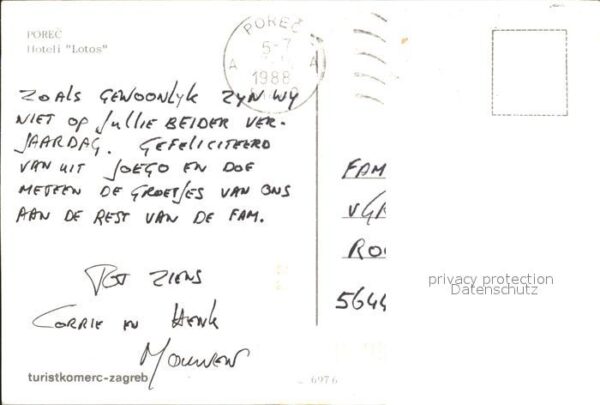 POREČ
Hoteli "Lotos"
POREČ
5-7
A A
1988
ZOALS GEWOONLYK ZYN WY
NIET OP JULLIE BEIDER VER-
JAARDAG. GEFELICITEERD
VAN UIT JOEGO EN DOE
METEEN DE GROETJES VAN ONS
AAN DE REST VAN DE FAM.
TOT ZIENS
CORRIE EN HENK
turistkomerc-zagreb
6976
FAM
5644
privacy protection
Datenschutz